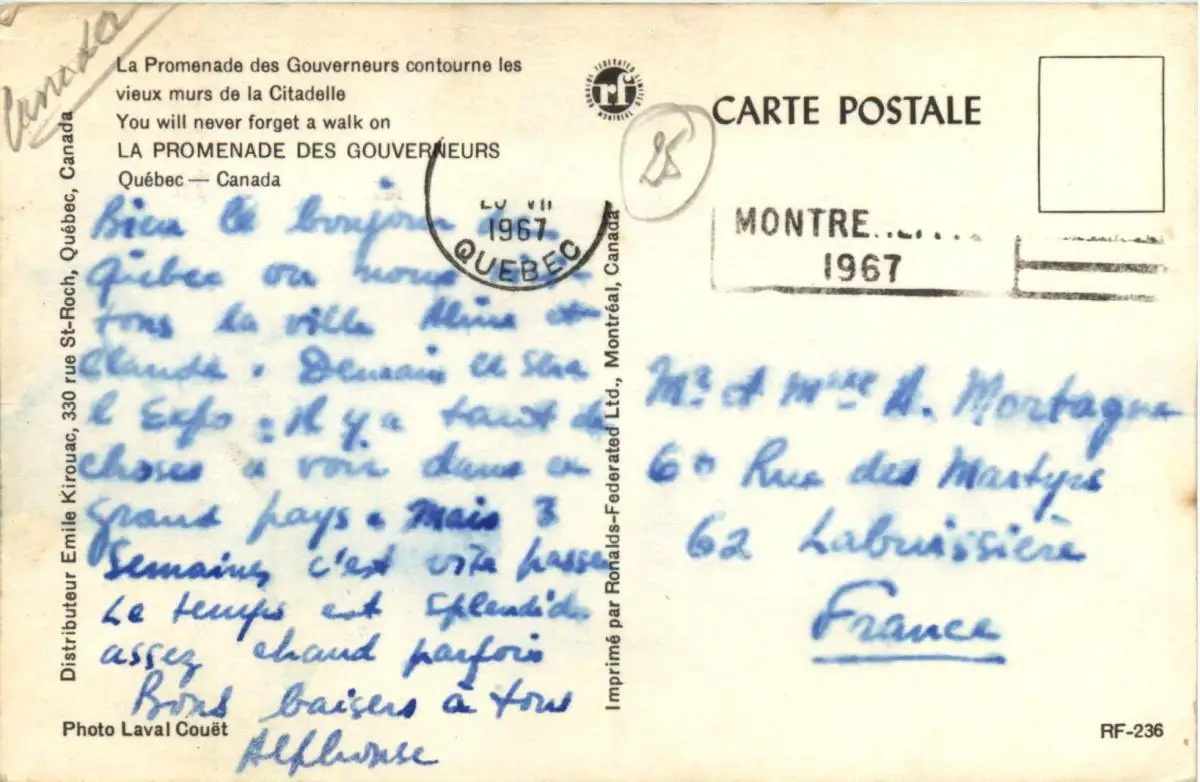 Canada
La Promenade des Gouverneurs contourne les
vieux murs de la Citadelle
You will never forget a walk on
LA PROMENADE DES GOUVERNEURS
Québec — Canada
RONALDS FEDERATED LIMITED
rf
MONTREAL
CARTE POSTALE
25
VII
1967
QUEBEC
MONTRE
1967
Bien le bonjour de
Québec ou nous visi-
tons la ville Aline et
Claude. Demain ce sera
l Expo. Il y a tant de
choses a voir dans ce
grand pays. Mais 3
Semaines c'est vite passe
Le temps est splendide
assez chaud parfois
Bons baisers à tous
Alphonse
Mr et Mme A. Mortagne
60 Rue des Martyrs
62 Labuissière
France
Distributeur Emile Kirouac, 330 rue St-Roch, Québec, Canada
Imprimé par Ronalds-Federated Ltd., Montréal, Canada
Photo Laval Couët
RF-236